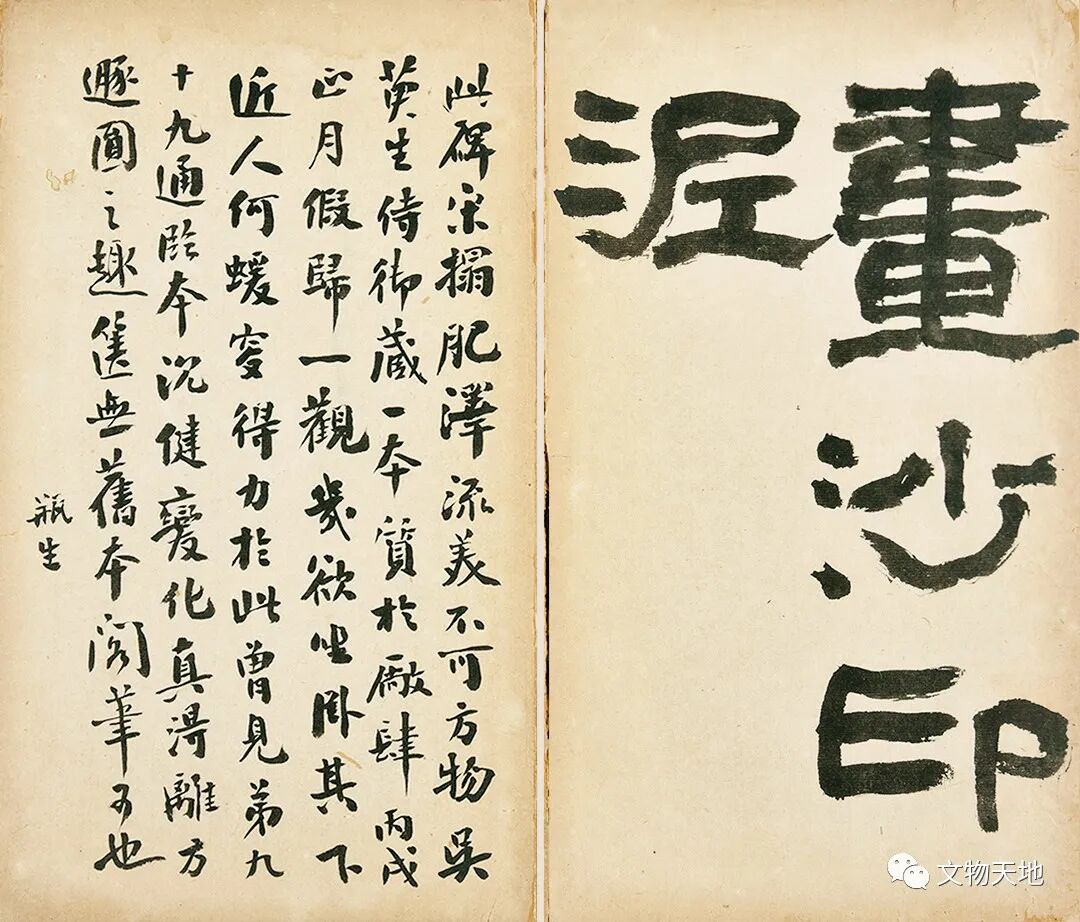 畫沙印
泥
此碑宋搨肥澤流美不可方物吳
生侍御藏一本質於廠肆丙戌
正月假歸一觀幾欲坐卧其下
近人何蝯叟得力於此曾見弟九
十九通臨本沉健變化真得離方
遯圓之趣篋無舊本閣筆可也
瓶生
文物天地